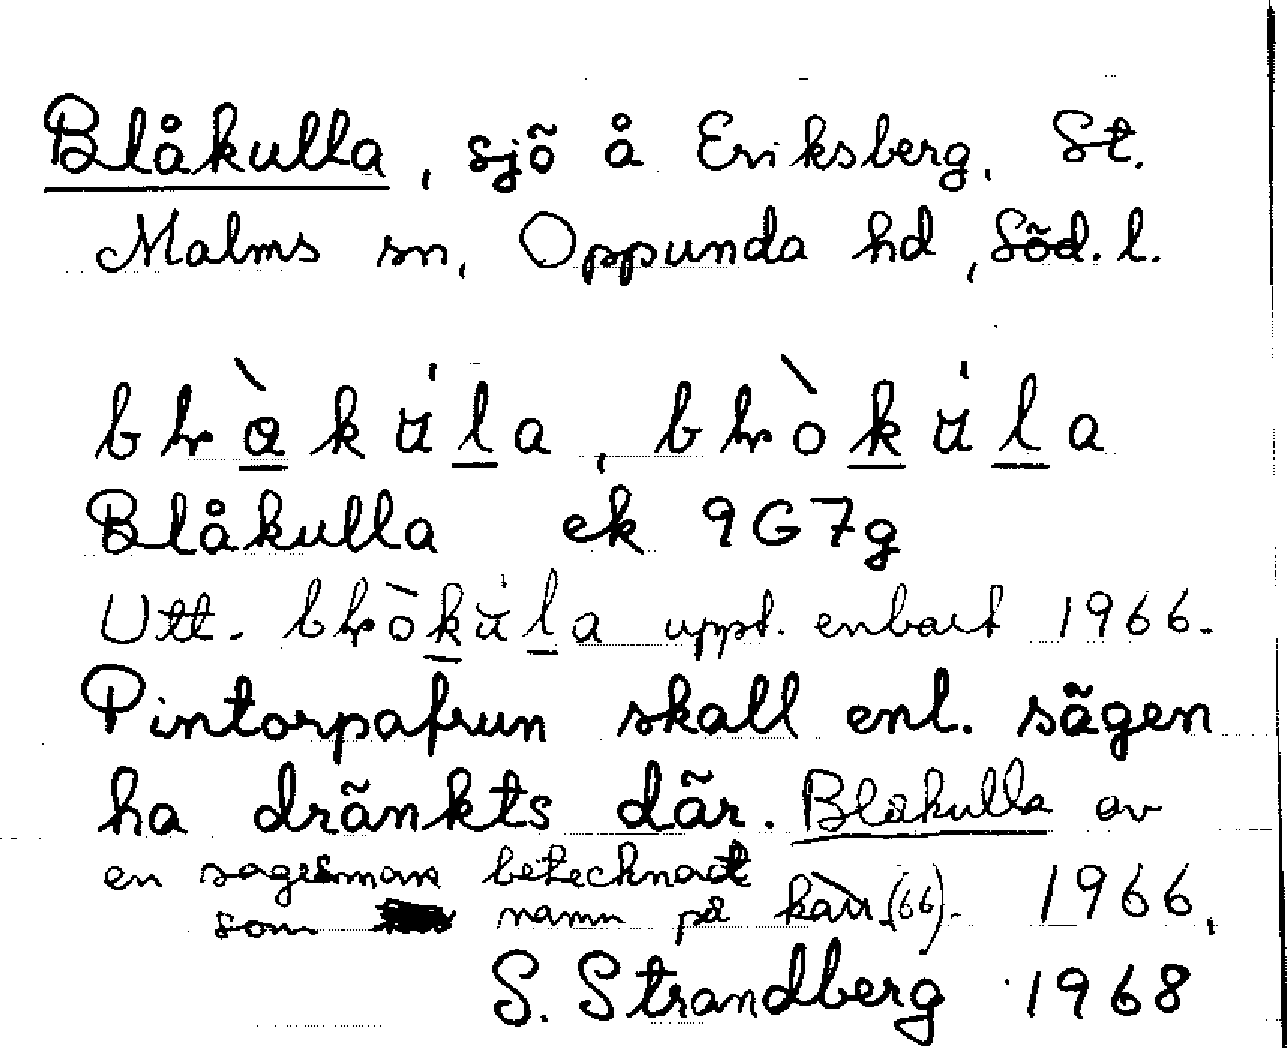 Blåkulla, sjö å Eriksberg, St.
Malms sn, Oppunda hd, Söd. l.
Blåkulla ek 9G7g
Utt. uppt. enbart 1966.
Pintorpafrun skall enl. sägen
ha dränkts där. Blåkulla av
en sagesman betecknat
som namn på kärr (66). 1966,
S. Strandberg 1968